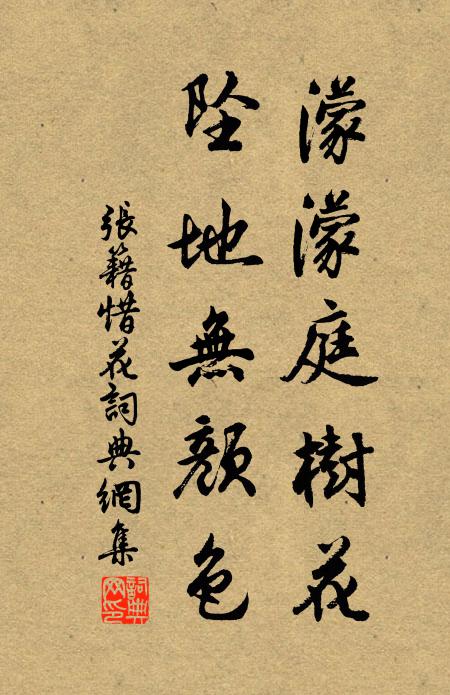 濛濛庭樹花
墜地無顏色
張籍惜花詞典網集
詞典網印